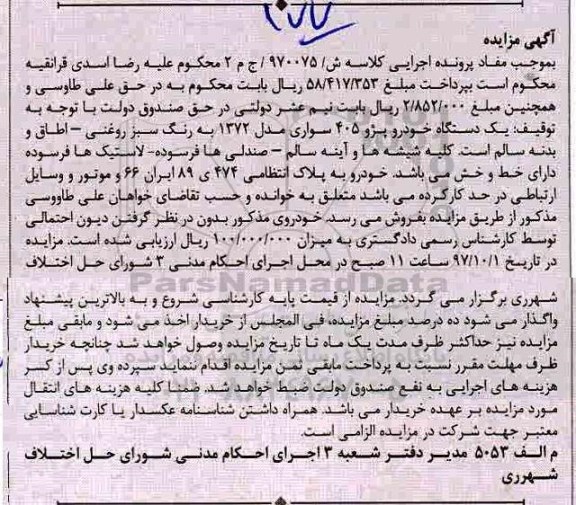 ۱۷۷
آگهی مزایده
بموجب مفاد پرونده اجرایی کلاسه ش/ ۹۷۰۰۷۵ / ج م ۲ محکوم علیه رضا اسدی قرانقیه
محکوم است بپرداخت مبلغ ۵۸/۴۱۷/۳۵۳ ریال بابت محکوم به در حق علی طاوسی و
همچنین مبلغ ۲/۸۵۲/۰۰۰ ریال بابت نیم عشر دولتی در حق صندوق دولت با توجه به
توقیف: یک دستگاه خودرو پژو ۴۰۵ سواری مدل ۱۳۷۲ به رنگ سبز روغنی – اطاق و
بدنه سالم است. کلیه شیشه ها و آینه سالم – صندلی ها فرسوده- لاستیک ها فرسوده
دارای خط و خش می باشد. خودرو به پلاک انتظامی ۴۷۴ ی ۸۹ ایران ۶۶ و موتور و وسایل
ارتباطی در حد کارکرده می باشد متعلق به خوانده و حسب تقاضای خواهان علی طاووسی
مذکور از طریق مزایده بفروش می رسد. خودروی مذکور بدون در نظر گرفتن دیون احتمالی
توسط کارشناس رسمی دادگستری به میزان ۱۰۰/۰۰۰/۰۰۰ ریال ارزیابی شده است. مزایده
در تاریخ ۹۷/۱۰/۱ ساعت ۱۱ صبح در محل اجرای احکام مدنی ۳ شورای حل اختلاف
ParsNamadData
شهرری برگزار می گردد. مزایده از قیمت پایه کارشناسی شروع و به بالاترین پیشنهاد
واگذار می شود ده درصد مبلغ مزایده، فی المجلس از خریدار اخذ می شود و مابقی مبلغ
مزایده نیز حداکثر ظرف مدت یک ماه تا تاریخ مزایده وصول خواهد شد چنانچه خریدار
ظرف مهلت مقرر نسبت به پرداخت مابقی ثمن مزایده اقدام ننماید سپرده وی پس از کسر
هزینه های اجرایی به نفع صندوق دولت ضبط خواهد شد. ضمنا کلیه هزینه های انتقال
مورد مزایده بر عهده خریدار می باشد. همراه داشتن شناسنامه عکسدار یا کارت شناسایی
معتبر جهت شرکت در مزایده الزامی است.
م الف ۵۰۵۳ مدیر دفتر شعبه ۳ اجرای احکام مدنی شورای حل اختلاف
شهرری